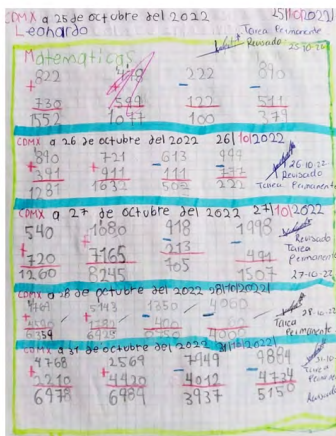 CDMX a 25 de octubre del 2022 25/10/2022
Leonardo
Tarea Permanente
Revisado 25-10-22
Matematicas
+822 478 -222 -890
730 599 122 511
1552 1077 100 379
CDMX a 26 de octubre del 2022 26/10/2022
+890 +721 -613 -999
391 911 111 777
1281 1632 502 222
26-10-22
Revisado
Tarea Permanente
CDMX a 27 de octubre del 2022 27/10/2022
540 +1080 918 1998
+720 7165 -213 -491
1260 8245 705 1507
Revisado
Tarea
Permanente
27-10-22
CDMX a 28 de octubre del 2022 28/10/2022
1350 4060
4000
28-10-22
Tarea
Permanente
CDMX a 31 de octubre del 2022 31/10/2022
4768 2569 7949 9884
+2210 +4420 -4012 -4734
6978 6989 3937 5150
Tarea
Revisado